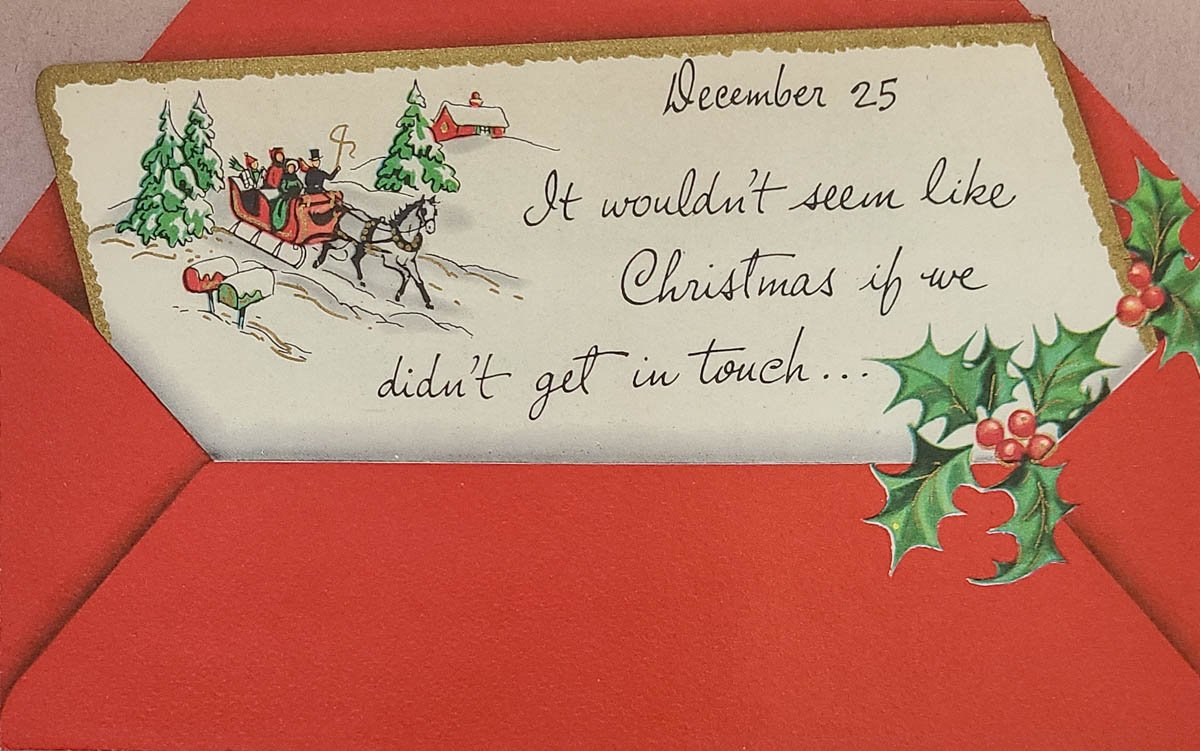 December 25
It wouldn't seem like
Christmas if we
didn't get in touch...